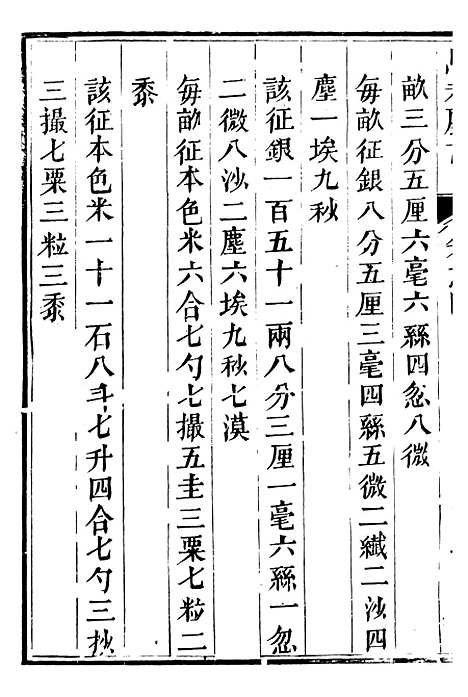 畝三分五厘六毫六絲四忽八微
每畝征銀八分五厘三毫四絲五微二纖二沙四
塵一埃九秒
該征銀一百五十一兩八分三厘一毫六絲一忽
二微八沙二塵六埃九秒七漠
每畝征本色米六合七勺七撮五圭三粟七粒二
黍
該征本色米一十一石八斗七升四合七勺三抄
三撮七粟三粒三黍